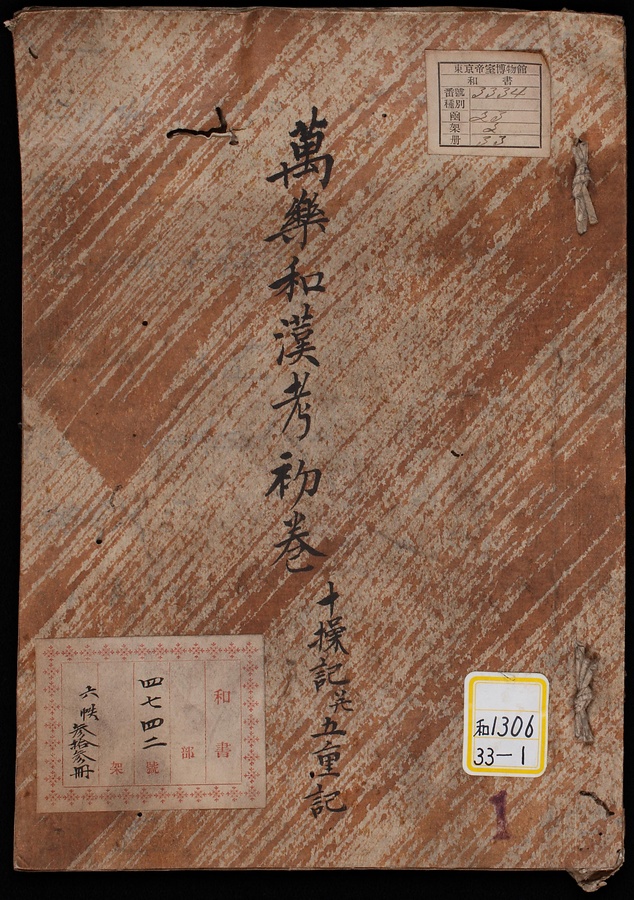 東京帝室博物館
和書
番號 3334
種別
函 23
架 2
册 33
萬樂和漢考初卷
十操記并五重記
和書
部
四七四二號
架
六帙參拾參冊
和1306
33-1
1